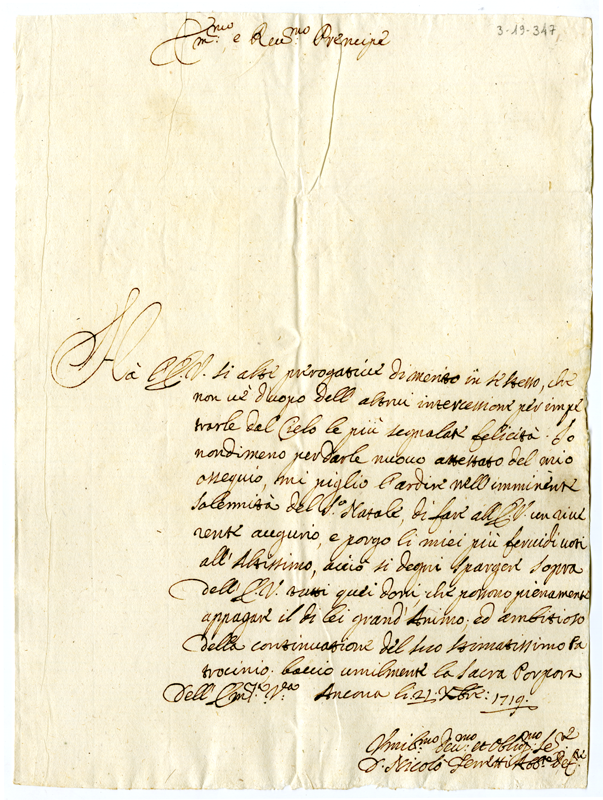 3-19-347,
Em.mo e Reu.mo Prencipe
Hà l'E.V. si alte prerogative di merito in sé stesso, che
non ve d'uopo dell'altrui intercessione per impe
trarle dal Cielo le più segnalate felicità. Io
nondimeno per darle nuovo attestato del mio
ossequio, mi piglio l'ardire nell'imminente
solennità del S.o Natale, di fare all'E.V. un rive
rente augurio, e porgo li miei più fervidi voti
all'Altissimo, acciò si degni spargere sopra
dell'E.V. tutti quei doni, che possono pienamente
appagare il di lei grand'Animo; ed ambitioso
della continuatione del suo stimatissimo Pa
trocinio, baccio umilmente la Sacra Porpora
Dell'Em.za V.ra Ancona li 21 Xbre: 1719.
Umil.mo Deu.mo et Oblig.mo Se.re
D. Nicolò Ferretti